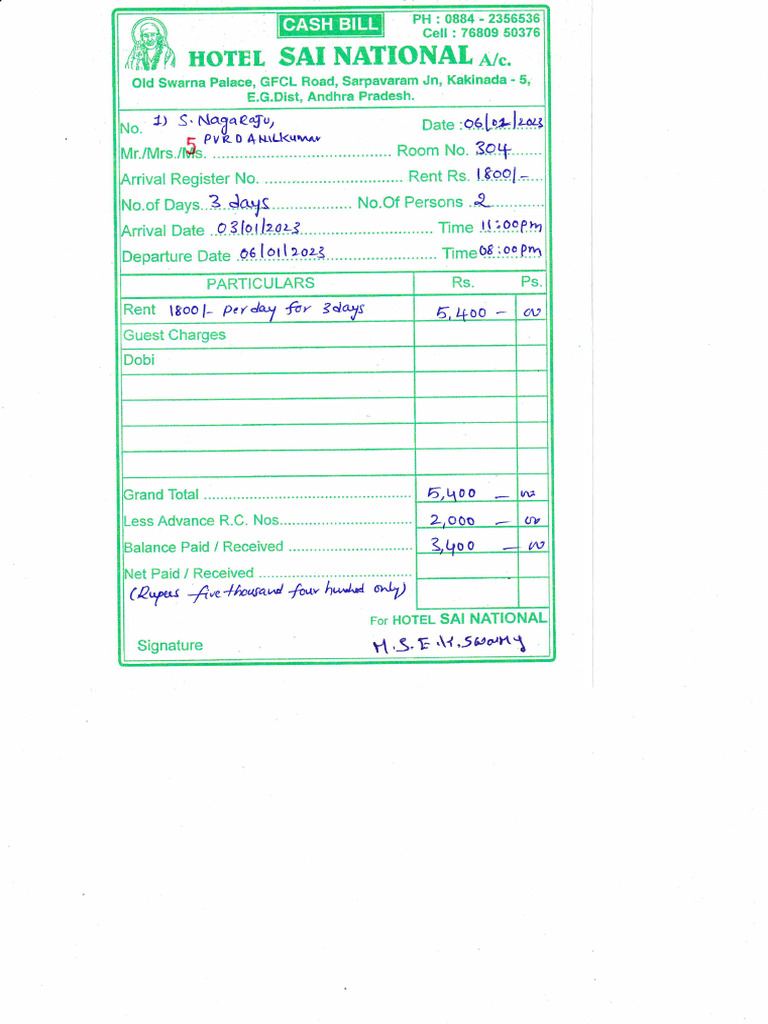 CASH BILL
PH : 0884 - 2356536
Cell : 76809 50376
HOTEL SAI NATIONAL A/c.
Old Swarna Palace, GFCL Road, Sarpavaram Jn, Kakinada - 5,
E.G.Dist, Andhra Pradesh.
No. 1) S. Nagaraju, Date : 06/01/2023
5
Mr./Mrs./Ms. PVRD ANILKumar Room No. 304
Arrival Register No. Rent Rs. 1800/-
No.of Days 3 days No.Of Persons 2
Arrival Date 03/01/2023 Time 11:00pm
Departure Date 06/01/2023 Time 08:00pm
PARTICULARS Rs. Ps.
Rent 1800/- per day for 3days 5,400 - 00
Guest Charges
Dobi
Grand Total 5,400 - 00
Less Advance R.C. Nos. 2,000 - 00
Balance Paid / Received 3,400 - 00
Net Paid / Received
(Rupees five thousand four hundred only)
For HOTEL SAI NATIONAL
Signature M.S.E.K.Swamy